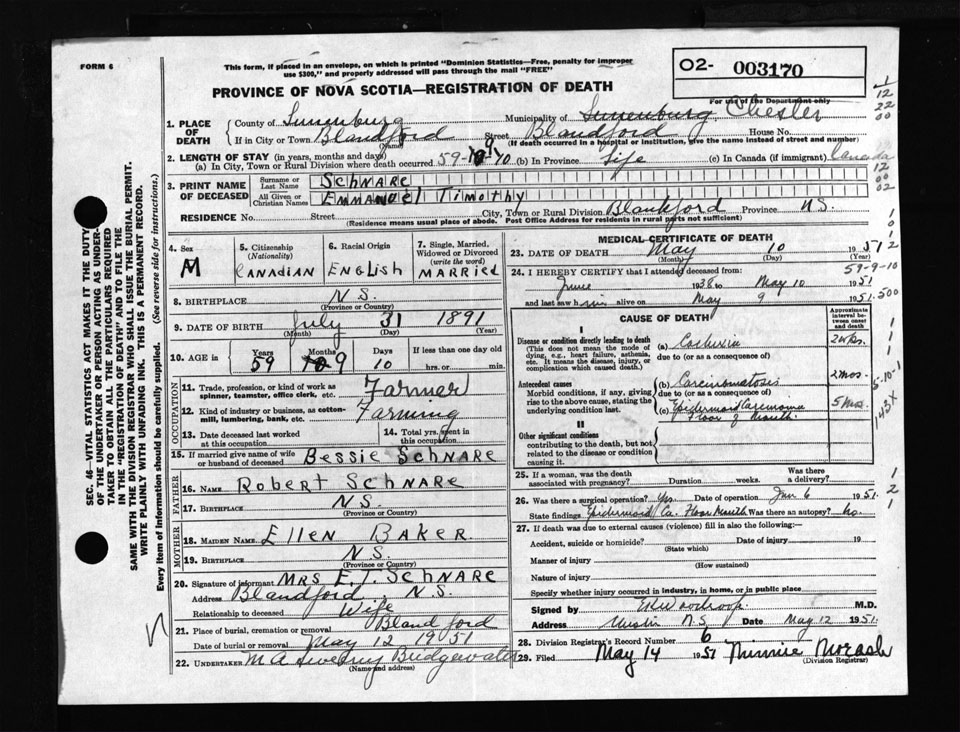 FORM 6
This form, if placed in an envelope, on which is printed "Dominion Statistics—Free, penalty for improper
use $300," and properly addressed will pass through the mail "FREE"
PROVINCE OF NOVA SCOTIA—REGISTRATION OF DEATH
O2- 003170
For use of Department only
1. PLACE OF DEATH
County of Lunenburg Municipality of Lunenburg, Chester
If in City or Town Blandford (Name) Street Blandford House No.
(If death occurred in a hospital or institution, give its name instead of street and number)
2. LENGTH OF STAY (in years, months and days)
(a) In City, Town or Rural Division where death occurred 59- 9 10 (b) In Province Life (c) In Canada (if immigrant) Canada
3. PRINT NAME OF DECEASED
Surname or Last Name SCHNARE
All Given or Christian Names EMMANUEL TIMOTHY
RESIDENCE No. Street City, Town or Rural Division Blandford Province N.S.
(Residence means usual place of abode. Post Office Address for residents in rural parts not sufficient)
4. Sex M
5. Citizenship (Nationality) CANADIAN
6. Racial Origin ENGLISH
7. Single, Married, Widowed or Divorced (write the word) MARRIED
8. BIRTHPLACE N.S. (Province or Country)
9. DATE OF BIRTH July 31 1891
(Month) (Day) (Year)
10. AGE in Years 59 Months 9 Days 10 If less than one day old hrs. or min.
OCCUPATION
11. Trade, profession, or kind of work as spinner, teamster, office clerk, etc. Farmer
12. Kind of industry or business, as cotton-mill, lumbering, bank, etc. Farming
13. Date deceased last worked at this occupation
14. Total yrs. spent in this occupation
15. If married give name of wife or husband of deceased BESSIE SCHNARE
FATHER
16. NAME ROBERT SCHNARE
17. BIRTHPLACE N.S. (Province or Country)
MOTHER
18. MAIDEN NAME ELLEN BAKER
19. BIRTHPLACE N.S. (Province or Country)
20. Signature of informant MRS E.T. SCHNARE
Address Blandford, N.S.
Relationship to deceased Wife
21. Place of burial, cremation or removal Blandford
Date of burial or removal May 12 1951
22. UNDERTAKER M A Sweeny Bridgewater
(Name and address)
MEDICAL CERTIFICATE OF DEATH
23. DATE OF DEATH May 10 1951
(Month) (Day)
24. I HEREBY CERTIFY that I attended deceased from:
June 1938 to May 10 1951
and last saw him alive on May 9 1951
59-9-10
CAUSE OF DEATH
Approximate interval between onset and death
I
Disease or condition directly leading to death (a) Cachexia 2 wks.
(This does not mean the mode of dying, e.g., heart failure, asthenia, etc. It means the disease, injury, or complication which caused death.)
due to (or as a consequence of)
Antecedent causes (b) Carcinomatosis 2 mos.
Morbid conditions, if any, giving rise to the above cause, stating the underlying condition last.
due to (or as a consequence of)
(c) Epidermoid Carcinoma Floor of Mouth. 5 mos.
II
Other significant conditions
contributing to the death, but not related to the disease or condition causing it.
5-10-1
143X
25. If a woman, was the death associated with pregnancy? Duration weeks. Was there a delivery?
26. Was there a surgical operation? Yes Date of operation Jan 6 1951
State findings Epidermoid Ca. Floor Mouth Was there an autopsy? No.
27. If death was due to external causes (violence) fill in also the following:—
Accident, suicide or homicide? (State which) Date of injury 19
Manner of injury (How sustained)
Nature of injury
Specify whether injury occurred in industry, in home, or in public place
Signed by M.D.
Address N.S. Date May 12 1951
28. Division Registrar's Record Number 6
29. Filed May 14 1951 Minnie Morash
(Division Registrar)
SEC. 46—VITAL STATISTICS ACT MAKES IT THE DUTY
OF THE UNDERTAKER OR PERSON ACTING AS UNDER-
TAKER TO OBTAIN ALL THE PARTICULARS REQUIRED
IN THE "REGISTRATION OF DEATH" AND TO FILE THE
SAME WITH THE DIVISION REGISTRAR WHO SHALL ISSUE THE BURIAL PERMIT.
WRITE PLAINLY WITH UNFADING INK. THIS IS A PERMANENT RECORD.
Every item of information should be carefully supplied. (See reverse side for instructions.)